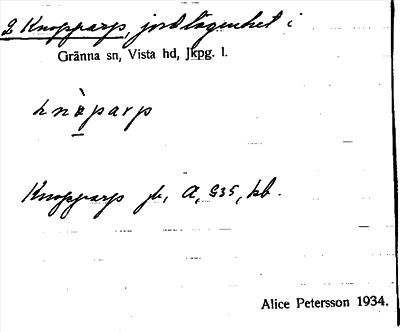 2 Knopparp, jordlägenhet i
Gränna sn, Vista hd, Jkpg. l.
Knopparp jb, a, 935, kb.
Alice Petersson 1934.